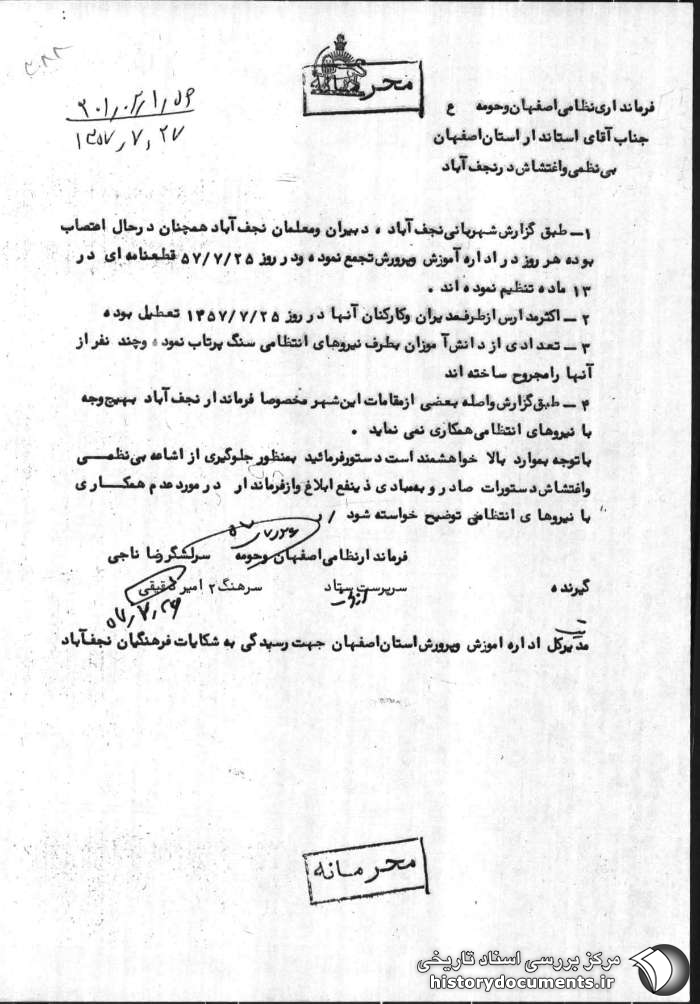 محرمانه
۲۰۱٫۰۲٫۱٫۵۶
۱۳۵۷٫۷٫۲۷
فرمانداری نظامی اصفهان وحومه ع
جناب آقای استاندار استان اصفهان
بی نظمی واغتشاش در نجف آباد
۱ــ طبق گزارش شهربانی نجف آباد ، دبیران ومعلمان نجف آباد همچنان در حال اعتصاب
بوده هر روز در اداره آموزش وپرورش تجمع نموده ودر روز ۵۷/۷/۲۵ قطعنامه ای در
۱۳ ماده تنظیم نموده اند .
۲ ــ اکثر مدارس از طرف مدیران وکارکنان آنها در روز ۱۳۵۷/۷/۲۵ تعطیل بوده
۳ ــ تعدادی از دانش آموزان بطرف نیروهای انتظامی سنگ پرتاب نموده وچند نفر از
آنها رامجروح ساخته اند
۴ ــ طبق گزارش واصله بعضی از مقامات این شهر مخصوصا فرماندار نجف آباد بهیچوجه
با نیروهای انتظامی همکاری نمی نماید .
باتوجه بموارد بالا خواهشمند است دستور فرمائید بمنظور جلوگیری از اشاعه بی نظمی
واغتشاش دستورات صادر و بمبادی ذینفع ابلاغ واز فرماندار در مورد عدم همکاری
با نیروهای انتظامی توضیح خواسته شود /ر
فرماندار نظامی اصفهان وحومه سرلشگر رضا ناجی
گیرنده سرپرست ستاد سرهنگ ۲ امیر حقیقی
۵۷٫۷٫۲۶
مدیرکل اداره اموزش وپرورش استان اصفهان جهت رسیدگی به شکایات فرهنگیان نجف آباد
محرمانه
مرکز بررسی اسناد تاریخی
historydocuments.ir